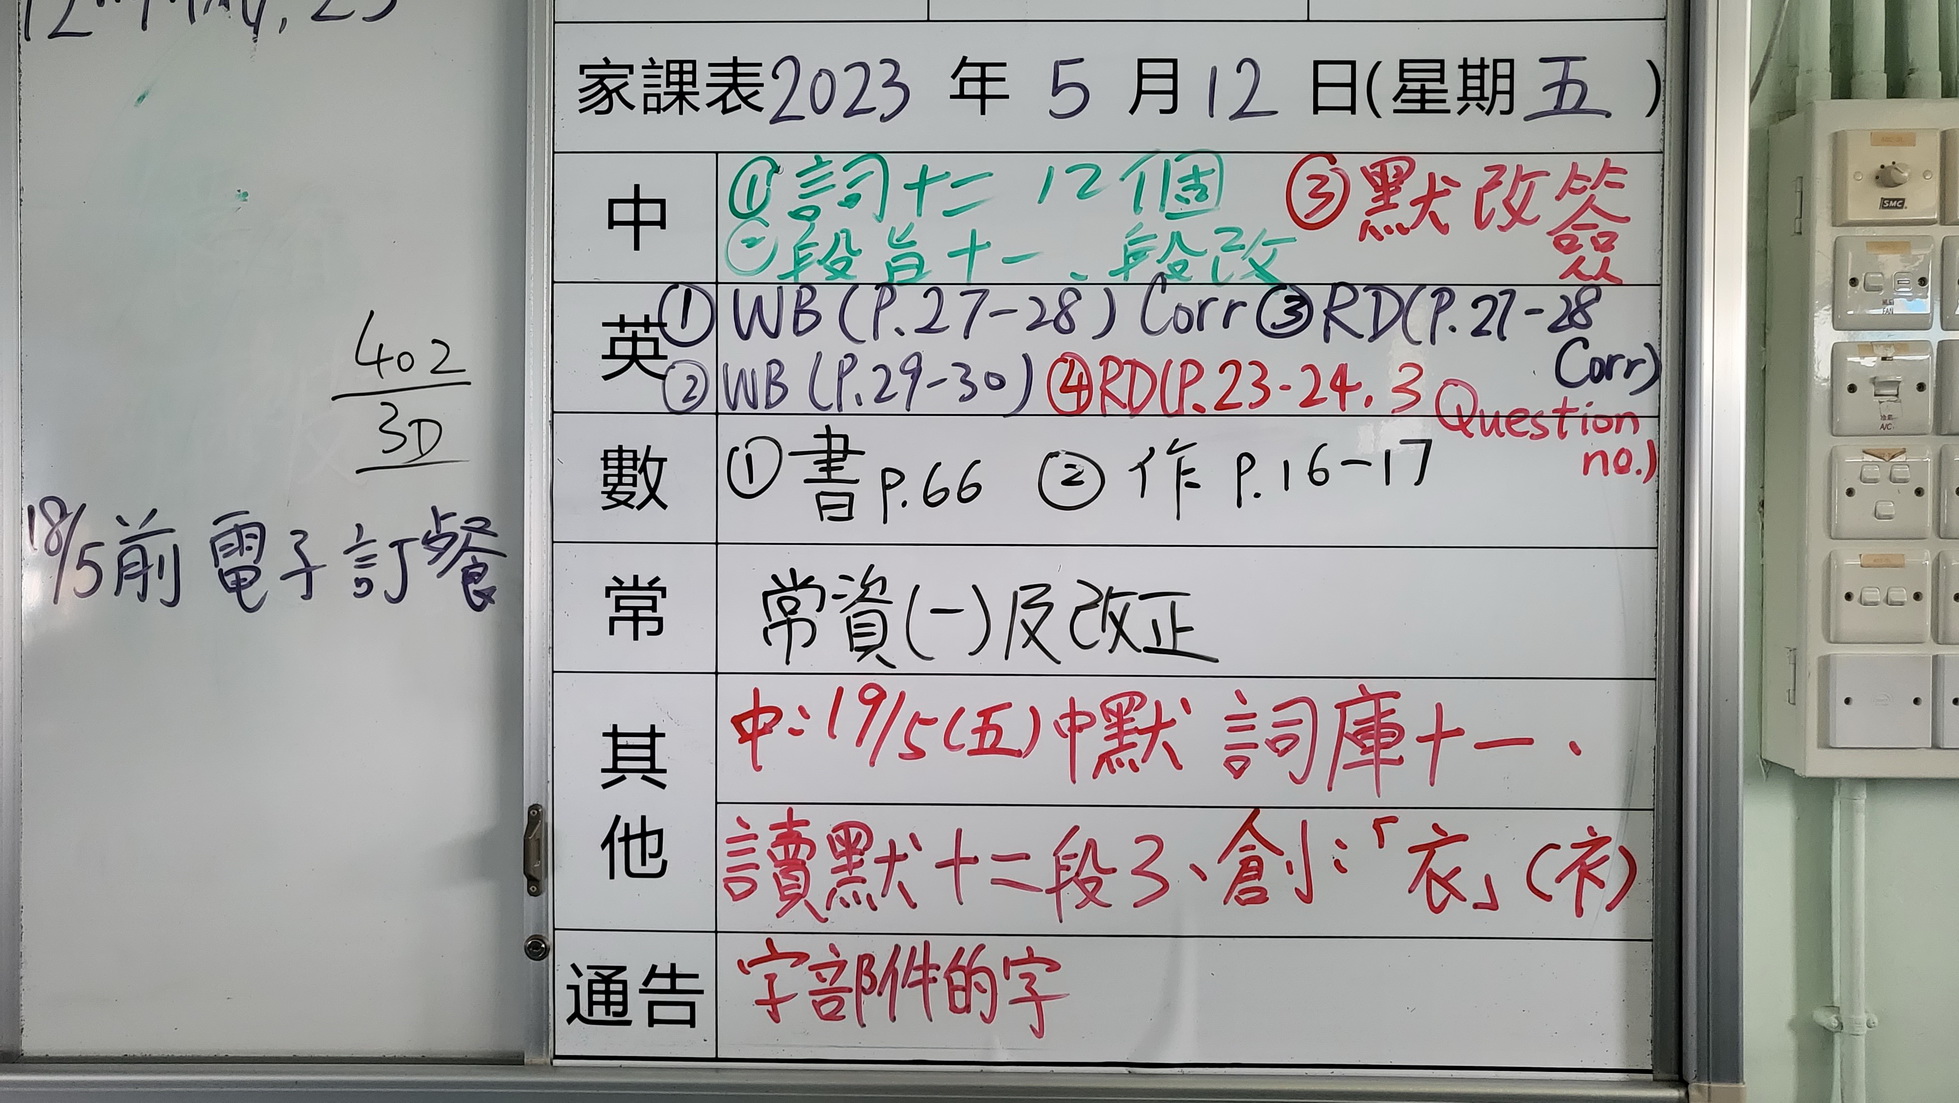 402
3D
18/5前 電子訂餐
家課表2023 年 5 月 12 日(星期 五 )
中
①詞十二 12個 ③默改簽
②段旨十一、段改
英
① WB (P.27-28) Corr ③ RD(P.27-28 Corr)
② WB (P.29-30) ④RD(P.23-24. 3 Question no.)
數
① 書 p.66 ② 作 p.16-17
常
常資(一)及改正
其他
中:19/5(五)中默 詞庫十一、
讀默十二段3、創:「衣」(衤)
通告
字部件的字
SMC
FAN
A/C